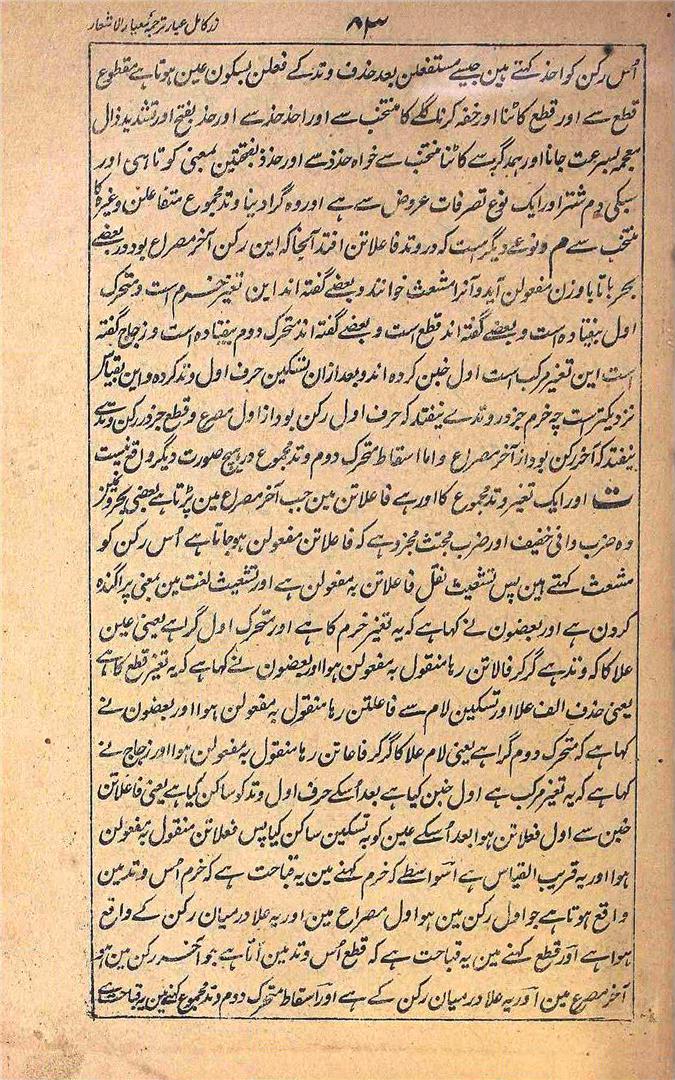 زر کامل عیار ترجمۂ معیار الاشعار
۸۳
اُس رکن کو احذ کہتے ہین جیسے مستفعلن بعد حذف وتد کے فعلن بسکون عین ہوتا ہے مقطوع
قطع سے اور قطع کاٹنا اور خفہ کرنا گلے کا منتخب سے اور احذ حذ سے اور حذ بفتح اور تشدید ذال
معجمہ بسرعت جانا اور ہمدگر سے کاٹنا منتخب سے خواہ حذذ سے اور حذذ بفتحتین بمعنی کوتاہی اور
سبکی دم شتر اور ایک نوع تصرفات عروض سے ہے اور وہ گرا دینا وتد مجموع متفاعلن وغیرہ کا
منتخب سے م ونوعے دیگر است کہ در وتد فاعلاتن افتد آنجا کہ این رکن آخر مصراع بود در بعضے
بحر ہا تا با وزن مفعولن آید و آنرا مشعث خوانند و بعضے گفتہ اند این تغیر خرم است و متحرک
اول بیفتادہ است و بعضے گفتہ اند قطع است و بعضے گفتہ اند متحرک دوم بیفتادہ است و زجاج گفتہ
است این تغیر مرکب است اول خبن کردہ اند و بعد ازان تسکین حرف اول وتد کردہ و این بقیاس
نزدیکتر است چہ خرم جز در وتدے نیفتد کہ حرف اول رکن بود از اول مصرع و قطع جز در رکن وتدے
نیفتد کہ آخر رکن بود از آخر مصراع و اما اسقاط متحرک دوم وتد مجموع در ہیچ صورت دیگر واقع نیست
ت اور ایک تغیر وتد مجموع کا اور ہے فاعلاتن مین جب آخر مصراع مین پڑتا ہے بعضی بحرونمین
وہ ضرب وافی خفیف اور ضرب مجتث مجزو ہے کہ فاعلاتن مفعولن ہو جاتا ہے اُس رکن کو
مشعث کہتے ہین پس تشعیث نقل فاعلاتن بہ مفعولن ہے اور تشعیث لغت مین بمعنی پراگندہ
کردن ہے اور بعضون نے کہا ہے کہ یہ تغیر خرم کا ہے اور متحرک اول گرا ہے یعنی عین
علا کا کہ وتد ہے گر کر فالاتن رہا منقول بہ مفعولن ہوا اور بعضون نے کہا ہے کہ یہ تغیر قطع کا ہے
یعنی حذف الف علا اور تسکین لام سے فاعلتن رہا منقول بہ مفعولن ہوا اور بعضون نے
کہا ہے کہ متحرک دوم گرا ہے یعنی لام علا کا گر کر فاعاتن رہا منقول بہ مفعولن ہوا اور زجاج نے
کہا ہے کہ یہ تغیر مرکب ہے اول خبن کیا ہے بعد اُسکے حرف اول وتد کو ساکن کیا ہے یعنی فاعلاتن
خبن سے اول فعلاتن ہوا بعد اُسکے عین کو بہ تسکین ساکن کیا پس فعلاتن منقول بہ مفعولن
ہوا اور یہ قریب القیاس ہے اسواسطے کہ خرم کہنے مین یہ قباحت ہے کہ خرم اُس وتد مین
واقع ہوتا ہے جو اول رکن مین ہو اول مصراع مین اور یہ علا درمیان رکن کے واقع
ہوا ہے اور قطع کہنے مین یہ قباحت ہے کہ قطع اُس وتد مین آتا ہے جو آخر رکن مین ہو
آخر مصرع مین اور یہ علا درمیان رکن کے ہے اور اسقاط متحرک دوم وتد مجموع کہنے مین یہ قباحت ہے